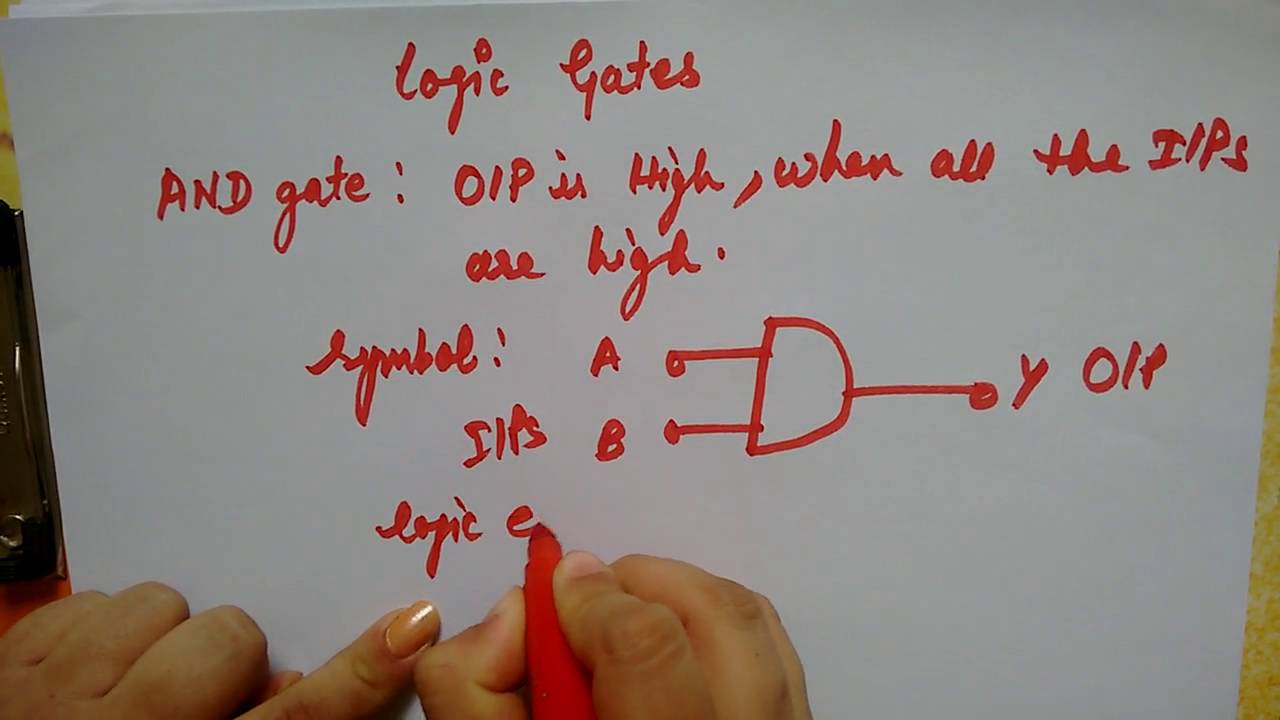 Logic Gates
AND gate: O/P is High, when all the I/Ps
are high.
Symbol: A
Y O/P
I/Ps B
logic e